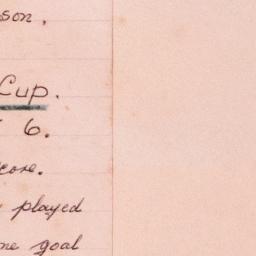 son.
Cup.
6.
core.
played
ne goal